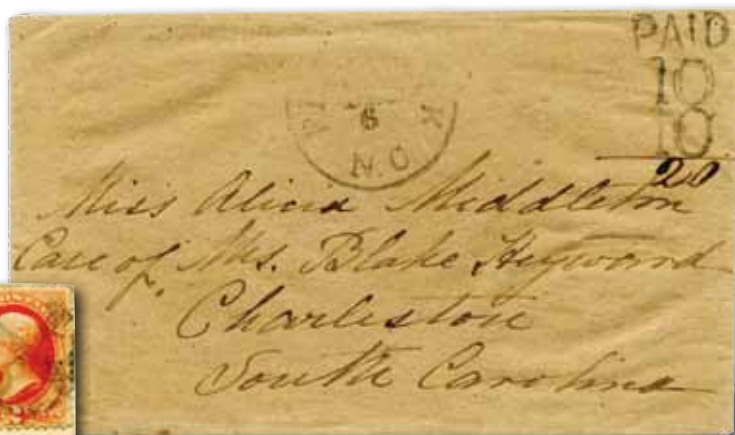 PAID
10
10
20
6
N.C
Miss Alicia Middleton
Care of Mrs. Blake Heyward
Charleston
South Carolina